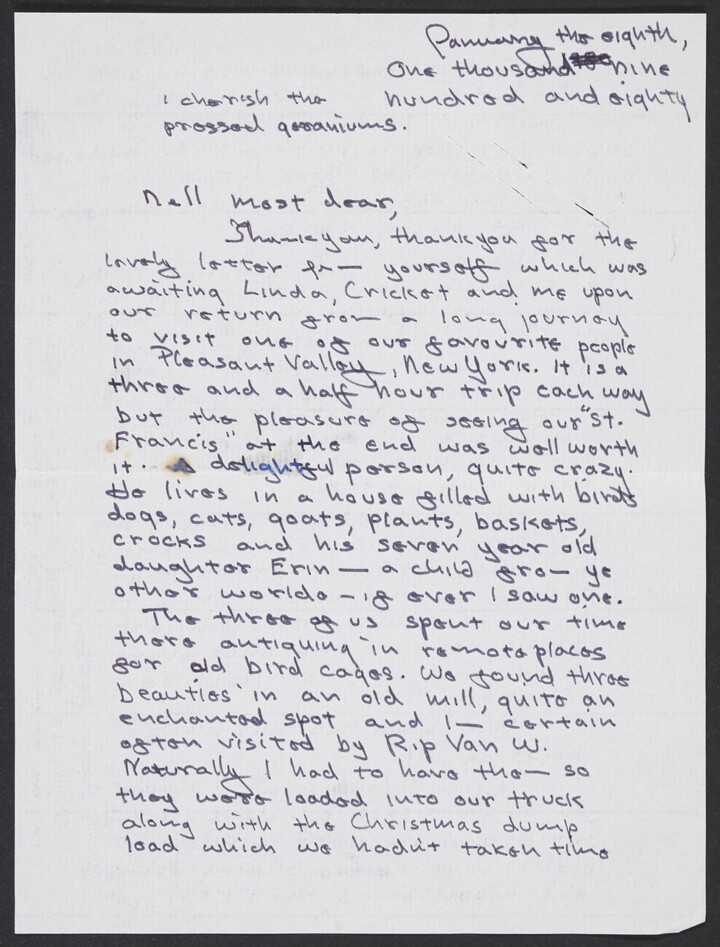 January the eighth,
One thousand nine
hundred and eighty
I cherish the
pressed geraniums.
Nell most dear,
Thank you, thank you for the
lovely letter fr— yourself which was
awaiting Linda, Cricket and me upon
our return fro— a long journey
to visit one of our favourite people
in Pleasant Valley, New York. It is a
three and a half hour trip each way
but the pleasure of seeing our "St.
Francis" at the end was well worth
it. A delightful person, quite crazy.
He lives in a house filled with birds
dogs, cats, goats, plants, baskets,
crocks and his seven year old
daughter Erin — a child fro— ye
other worlde — if ever I saw one.
The three of us spent our time
there antiquing in remote places
for old bird cages. We found three
beauties in an old mill, quite an
enchanted spot and I— certain
often visited by Rip Van W.
Naturally I had to have the— so
they were loaded into our truck
along with the Christmas dump
load which we hadn't taken time